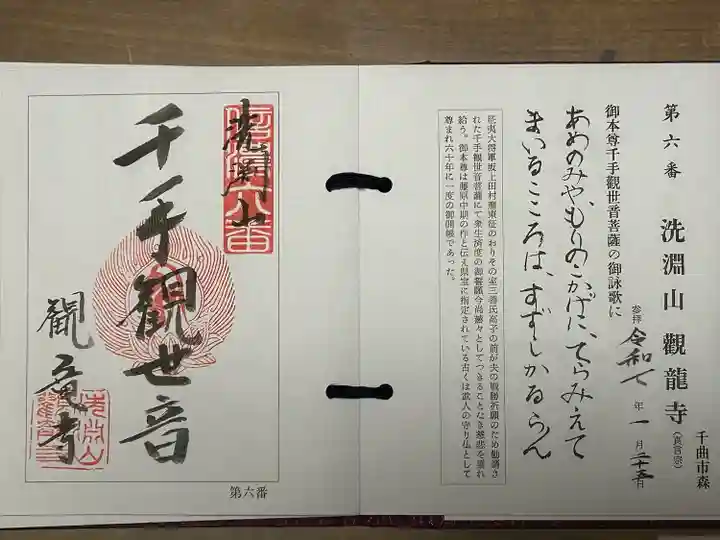 第六番 洗淵山 觀龍寺 (真言宗) 千曲市森
参拝 令和七年一月二十五日
御本尊千手觀世音菩薩の御詠歌に
あめのみや、もりのこかげに、てらみえて
まいるこころは、すずしかるらん
征夷大将軍坂上田村麿東征のおりその室三善氏高子の前が夫の戦勝祈願のため勧請さ
れた千手観世音菩薩にて衆生済度の御誓願今尚赫々としてつきることなき慈悲を垂れ
給う。御本尊は藤原中期の作と伝え県宝に指定されている古くは武人の守り仏として
尊まれ六十年に一度の御開帳であった。
信濃六番
洗渕山
千手觀世音
觀竜寺
第六番